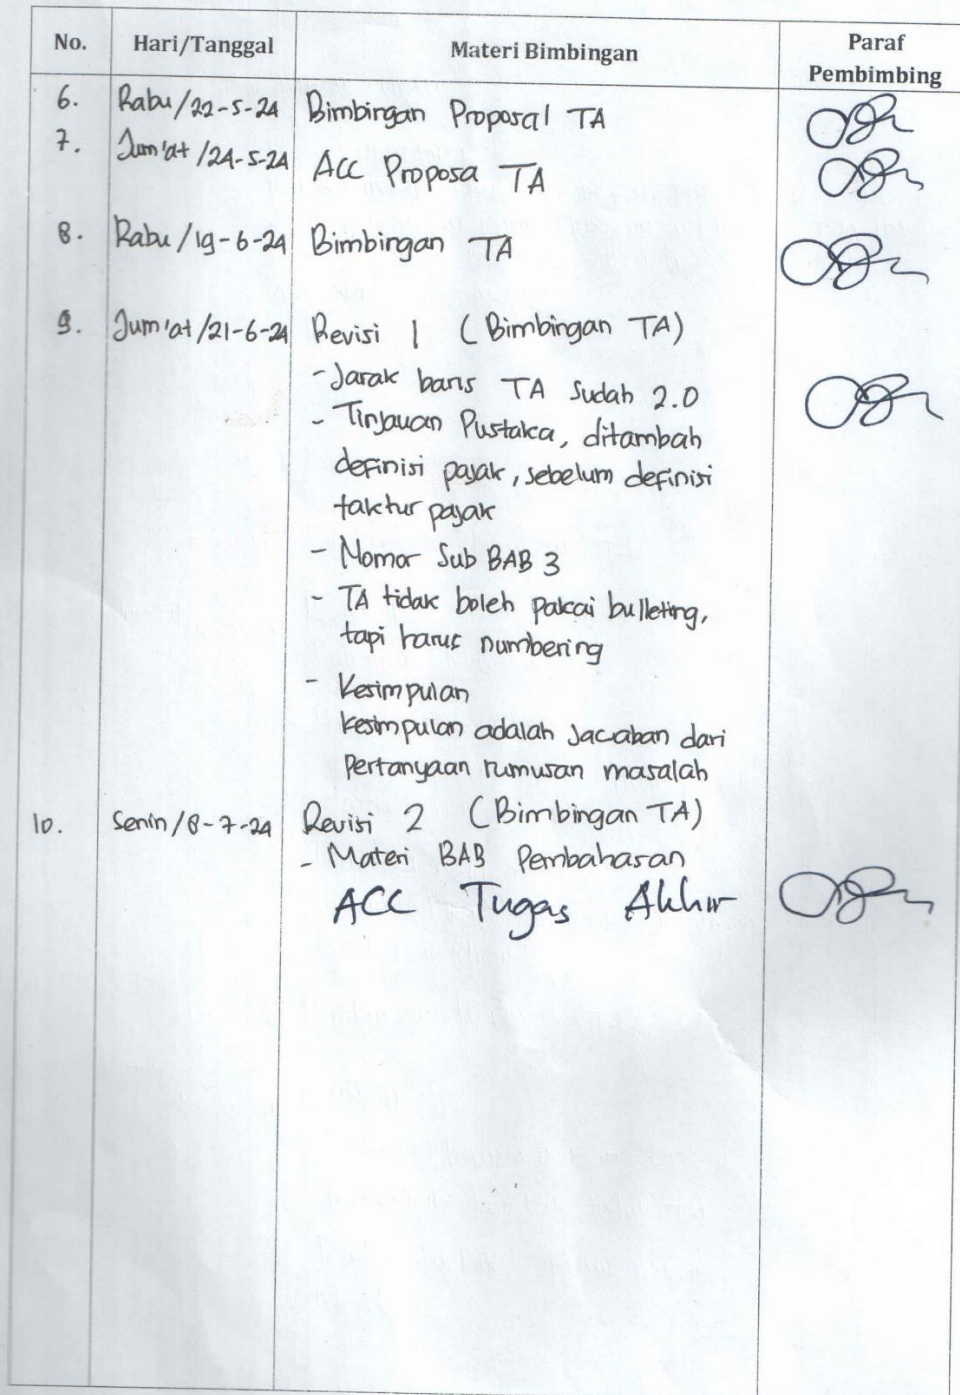 No. Hari/Tanggal Materi Bimbingan Paraf Pembimbing
6. Rabu/22-5-24 Bimbingan Proposal TA
7. Jum'at/24-5-24 ACC Proposa TA
8. Rabu/19-6-24 Bimbingan TA
9. Jum'at/21-6-24 Revisi 1 (Bimbingan TA)
- Jarak baris TA Sudah 2.0
- Tinjauan Pustaka, ditambah
definisi pajak, sebelum definisi
faktur pajak
- Nomor Sub BAB 3
- TA tidak boleh pakai bulleting,
tapi harus numbering
- Kesimpulan
Kesimpulan adalah Jawaban dari
Pertanyaan rumusan masalah
10. Senin/8-7-24 Revisi 2 (Bimbingan TA)
- Materi BAB Pembahasan
ACC Tugas Akhir